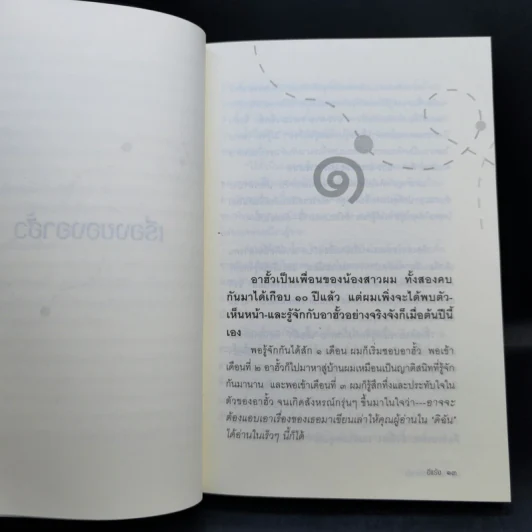 ๑
อาฮั้วเป็นเพื่อนของน้องสาวผม ทั้งสองคบ
กันมาได้เกือบ ๑๐ ปีแล้ว แต่ผมเพิ่งจะได้พบตัว-
เห็นหน้า-และรู้จักกับอาฮั้วอย่างจริงจังก็เมื่อต้นปีนี้
เอง
พอรู้จักกันได้สัก ๑ เดือน ผมก็เริ่มชอบอาฮั้ว พอเข้า
เดือนที่ ๒ อาฮั้วก็ไปมาหาสู่บ้านผมเหมือนเป็นญาติสนิทที่รู้จัก
กันมานาน และพอเข้าเดือนที่ ๓ ผมก็รู้สึกทึ่งและประทับใจใน
ตัวของอาฮั้ว จนเกิดสังหรณ์กรุ่นๆ ขึ้นมาในใจว่า---อาจจะ
ต้องแอบเอาเรื่องของเธอมาเขียนเล่าให้คุณผู้อ่านใน 'ดิฉัน'
ได้อ่านในเร็วๆ นี้ก็ได้
๑๓
เรื่องของอาฮั้ว